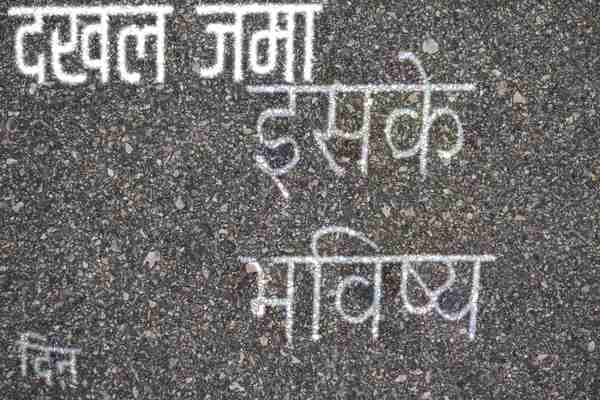 दखल जमा
इसके
भविष्य
दिन